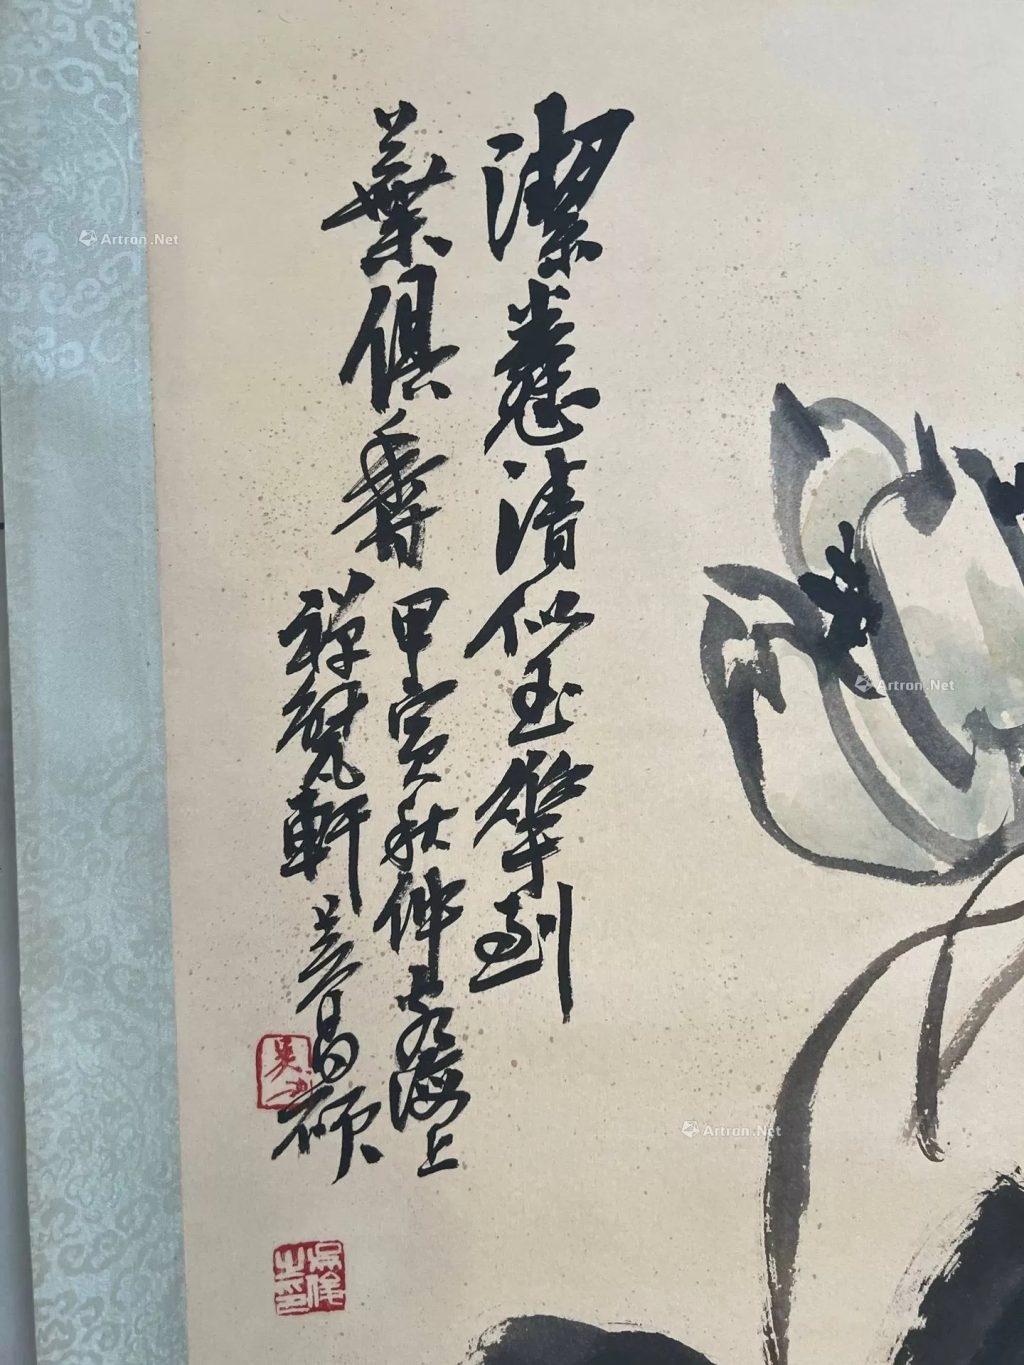 潔卷清似玉擎到
葉俱香 甲寅秋仲客海上
禪甓軒 吳昌碩
吳
吳俊之印
Artron.Net
Artron.Net
Artron.Net